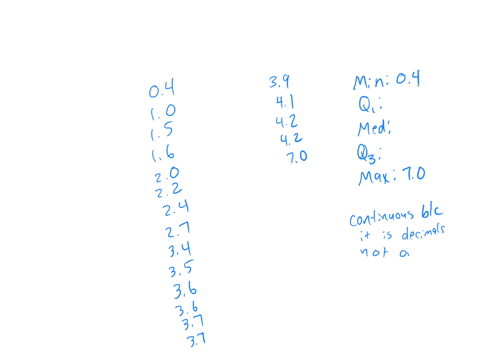 0.4
1.0
1.5
1.6
2.0
2.2
2.4
2.7
3.4
3.5
3.6
3.6
3.7
3.7
3.9
4.1
4.2
4.2
7.0
Min: 0.4
Q1:
Med:
Q3:
Max: 7.0
continuous b/c
it is decimals
not a